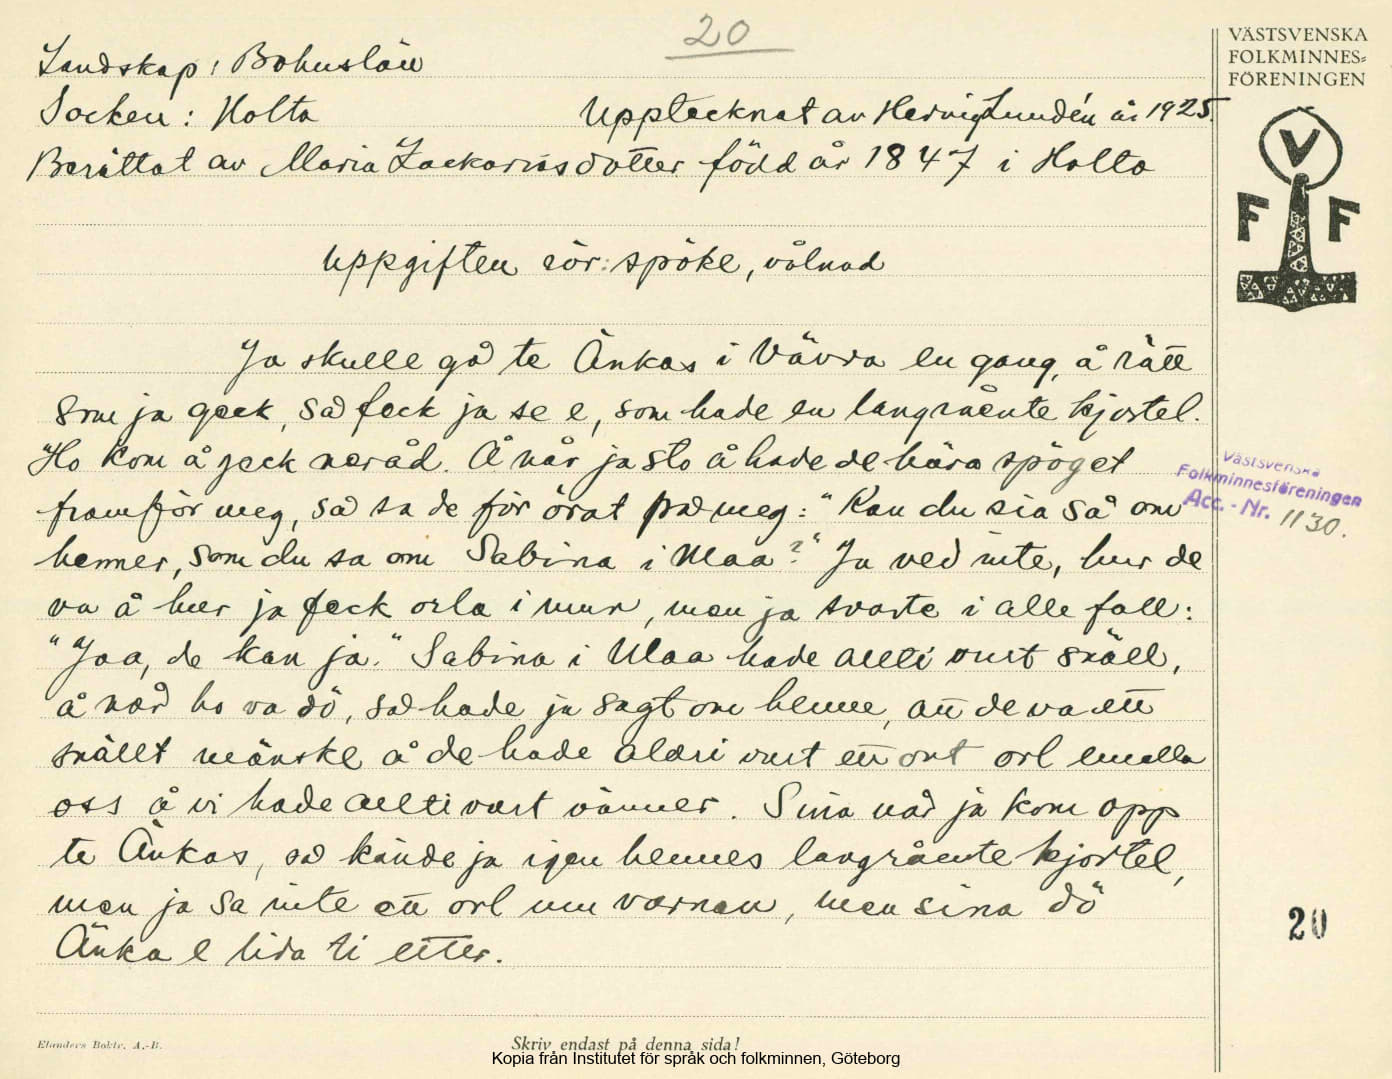 20
VÄSTSVENSKA
FOLKMINNES-
FÖRENINGEN
V
F F
Landskap: Bohuslän
Socken: Holta Upptecknat av Hervig Lundén år 1925.
Berättat av Maria Zackariasdotter född år 1847 i Holta
Uppgiften rör: spöke, vålnad
Ja skulle gå te Änkas i Vävra en gang, å rätt
som ja geck, så feck ja se e, som hade en langråente kjortel.
"Ho kom å geck neråd. Å når ja sto å hade de bära spöget
framför meg, så sa de för örat på meg: "Kan du sia så om
henner, som du sa om Sabina i Maa?" Ja ved inte, hur de
va å hur ja feck orla i mun, men ja svarte i alle fall:
"Jaa, de kan ja." Sabina i Maa hade allti vurt snäll,
å når ho va dö, så hade ja sagt om henne, att de va ett
snällt mänske å de hade aldri vurt ett ont orl emella
oss å vi hade allti vart vänner. Sina når ja kom opp
te Änkas, så kände ja igen hennes langråente kjortel,
men ja sa inte ett orl um varnan, men sina dö
Änka e lida ti etter.
Västsvenska
Folkminnesföreningen
Acc. - Nr. 1130.
20
Elanders Boktr. A.-B.
Skriv endast på denna sida!
Kopia från Institutet för språk och folkminnen, Göteborg